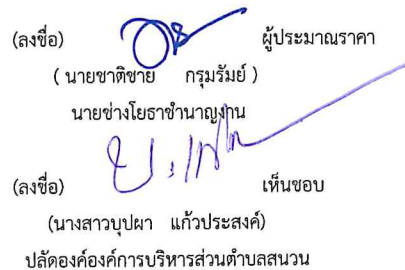 (ลงชื่อ) ผู้ประมาณราคา
( นายชาติชาย กรุมรัมย์ )
นายช่างโยธาชำนาญงาน
(ลงชื่อ) เห็นชอบ
(นางสาวบุปผา แก้วประสงค์)
ปลัดองค์องค์การบริหารส่วนตำบลสนวน